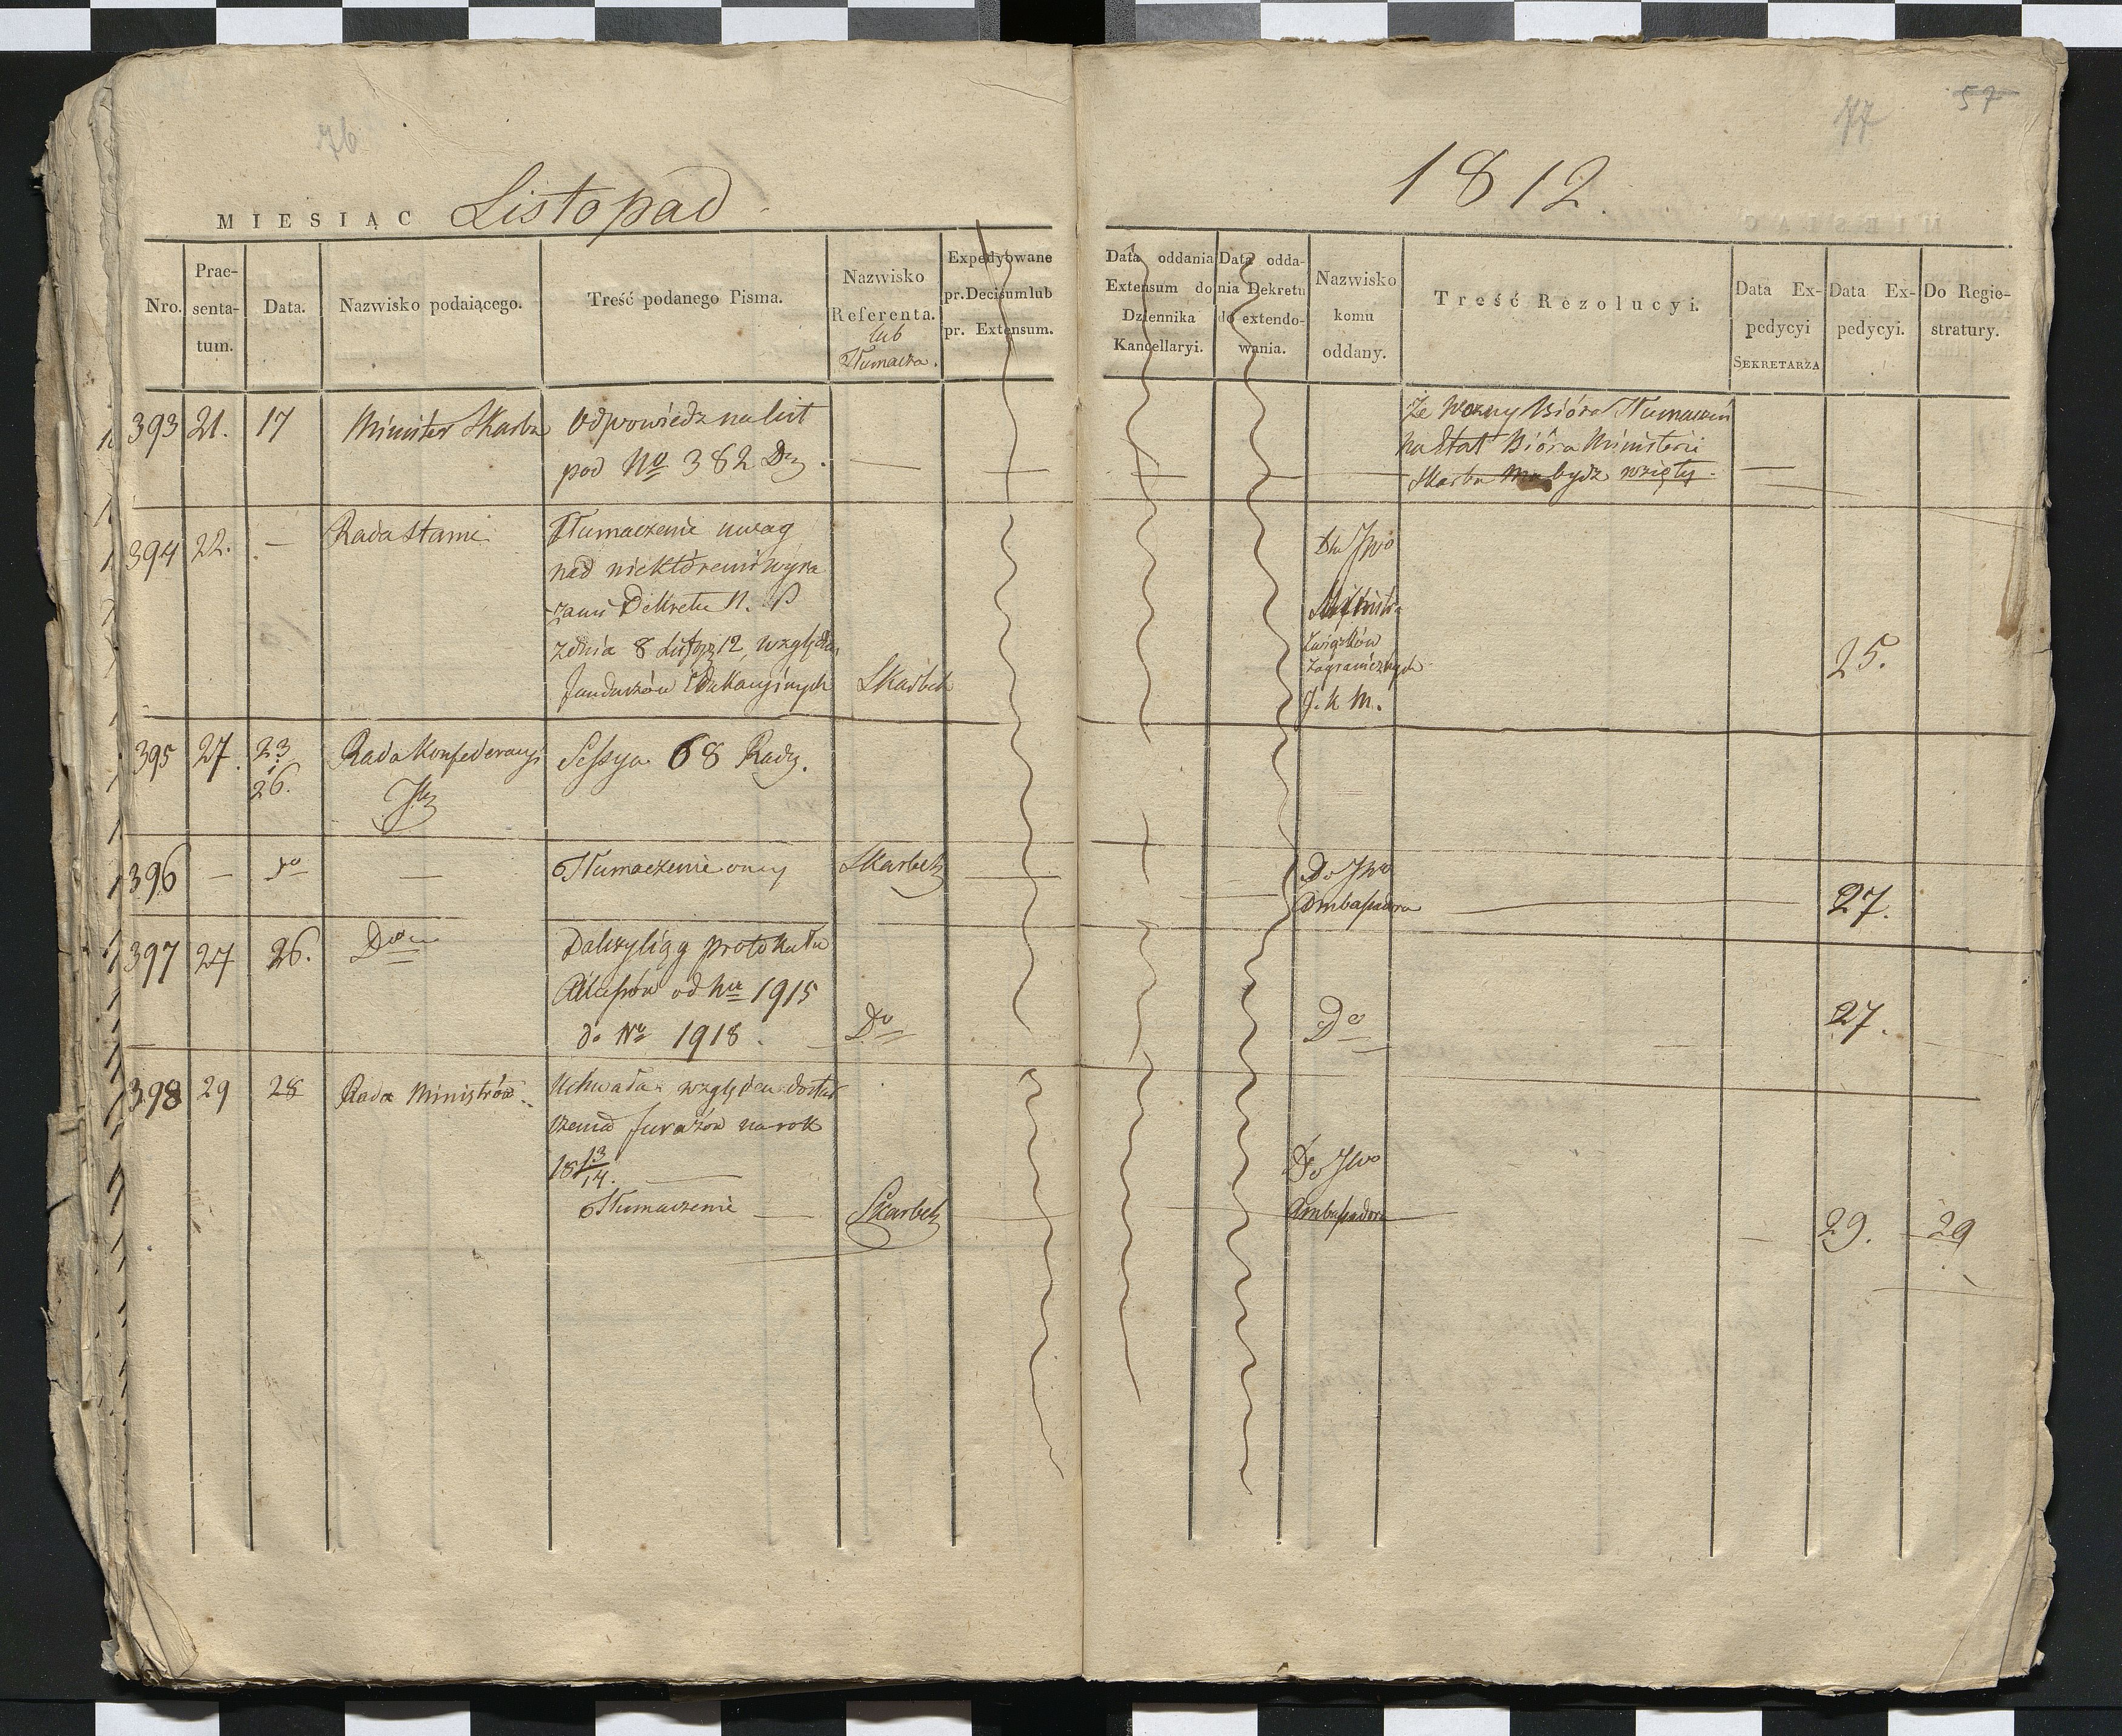 76
77
57
MIESIĄC Listopad
1812.
Nro.
Prae-
senta-
tum.
Data.
Nazwisko podaiącego.
Treść podanego Pisma.
Nazwisko
Referenta.
lub
Tłumacza.
Expedyowane
pr. Decisum lub
pr. Extensum.
Data oddania
Extensum do
Dziennika
Kancellaryi.
Data odda-
nia Dekretu
do extendo-
wania.
Nazwisko
komu
oddany.
Treść Rezolucyi.
Data Ex-
pedycyi
SEKRETARZA
Data Ex-
pedycyi.
Do Regie-
stratury.
393 21. 17 Minister Skarbu
Odpowiedz na list
pod No 382 Dz.
Ze Wozny Bióra Tłumaczeń
na Etat Bióra Ministerii
Skarbu ma bydz wzięty.
394 22. — Rada Stanu
Tłumaczenie uwag
nad niektóremi wyra
zami Dekretu N. P
z dnia 8 Listop 12, względem
funduszów Edukacyinych
Skarbek
Do JWo
Ministra
Związków
Zagranicznych
J. K. M.
25.
395 27. 23
i
26.
Rada Konfederacyi
Jlz
Sessya 68 Rady.
396 — do —
Tłumaczenie oney
Skarbek
Do JWo
Ambassadora
27.
397 27 26. Do
Dalszy ciąg protokułu
Akcessów od Nru 1915
do No 1918.
Do
Do
27.
398 29 28 Rada Ministrów
Uchwała względem dostar
czenia furażów na rok
1813/14.
Tłumaczenie — Skarbek
Do JWo
Ambassadora
29. 29